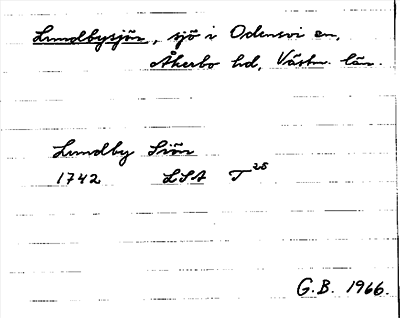 Lundbysjön, sjö i Odensvi sn,
Åkerbo hd, Västm. län.
Lundby Siön
1742 LSA T 25
G.B. 1966.